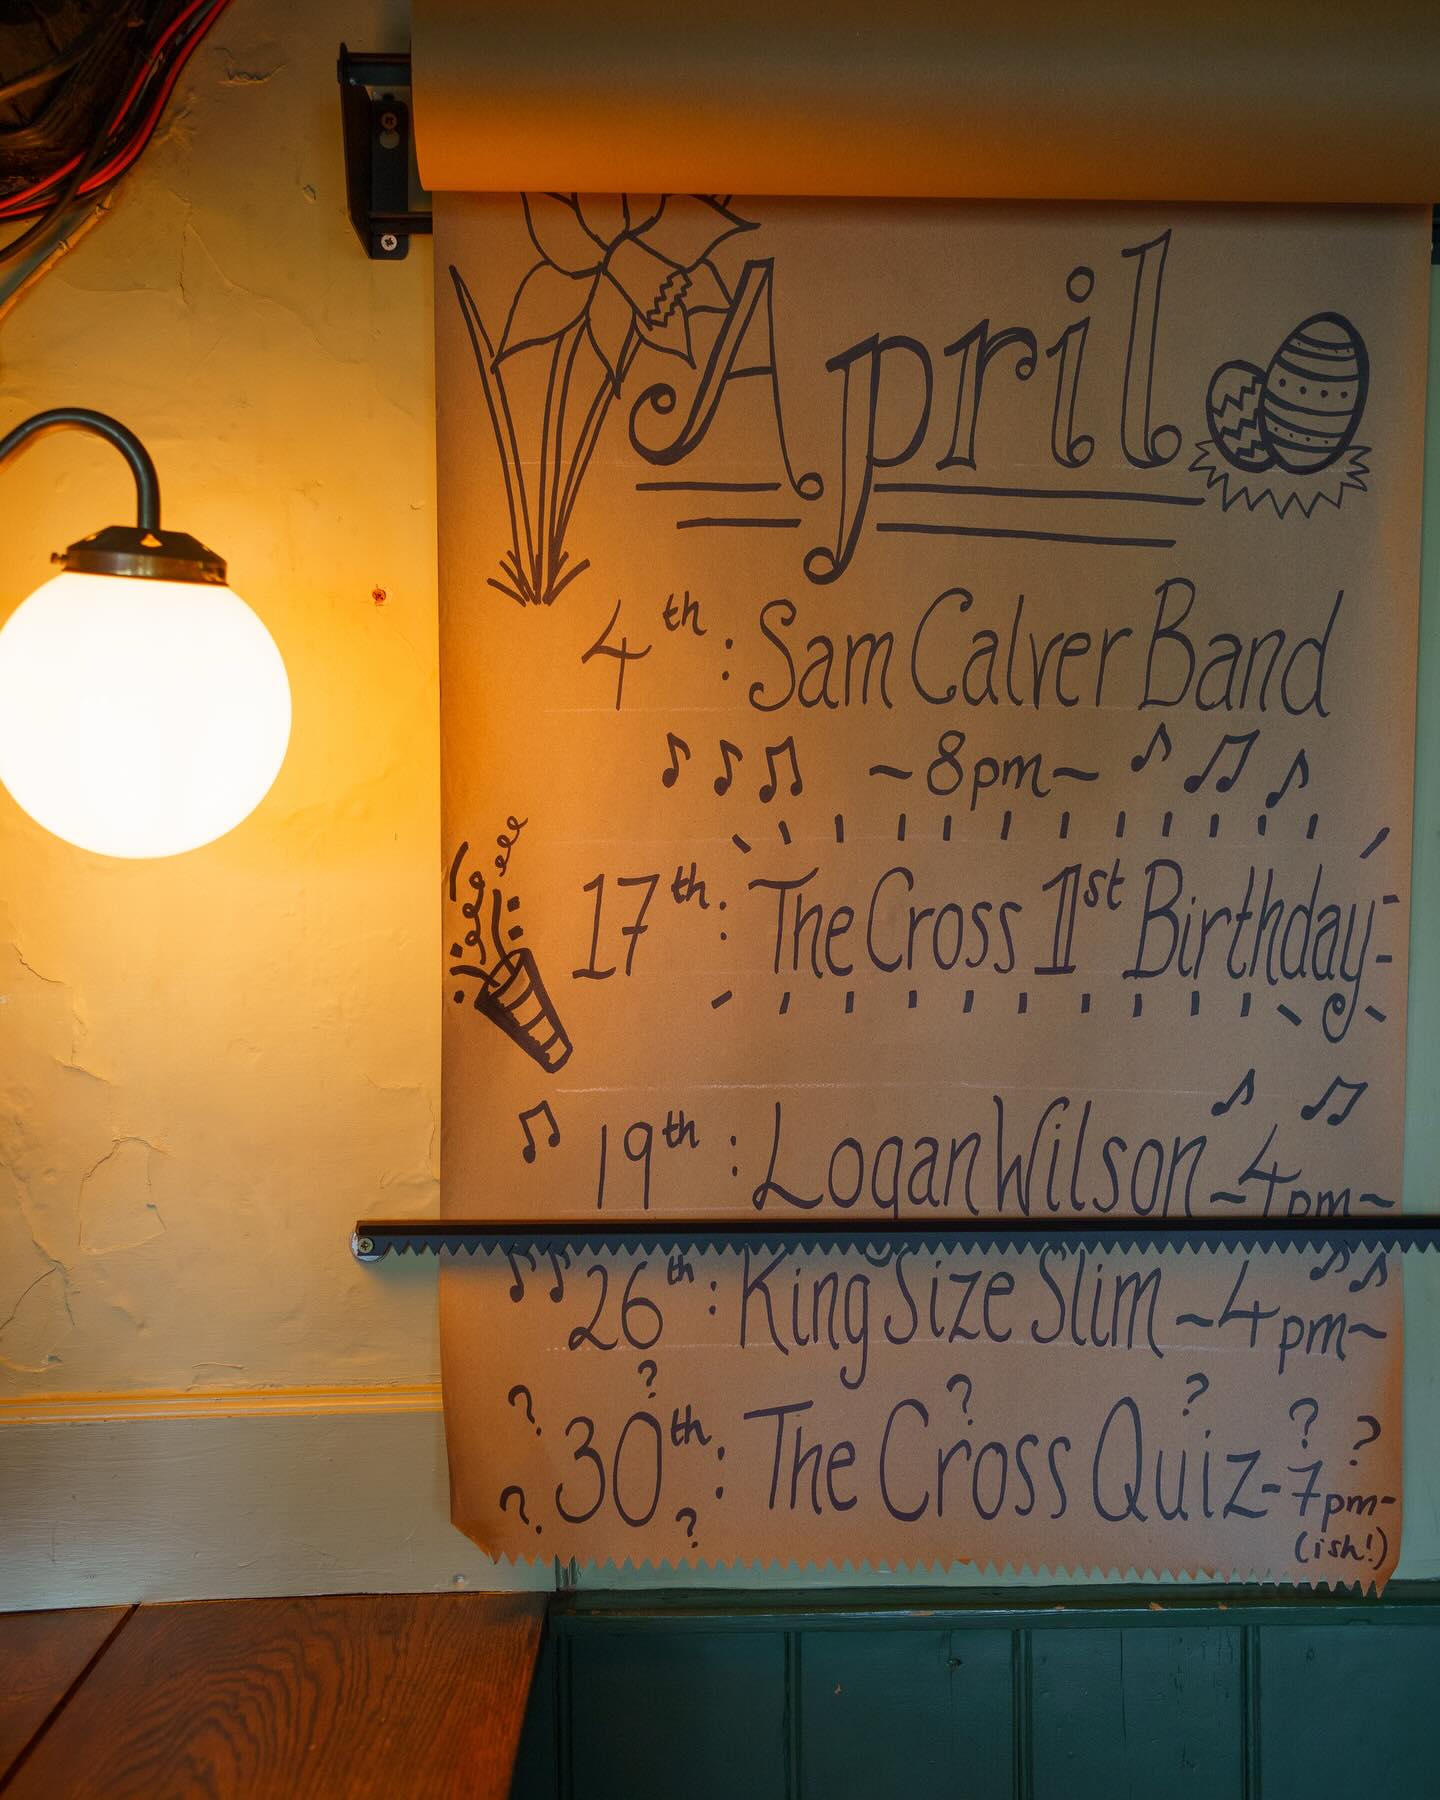 April
4th: Sam Calver Band
~8pm~
17th: The Cross 1st Birthday
19th: Logan Wilson ~4pm~
26th: King Size Slim ~4pm~
30th: The Cross Quiz -7pm-
(ish!)